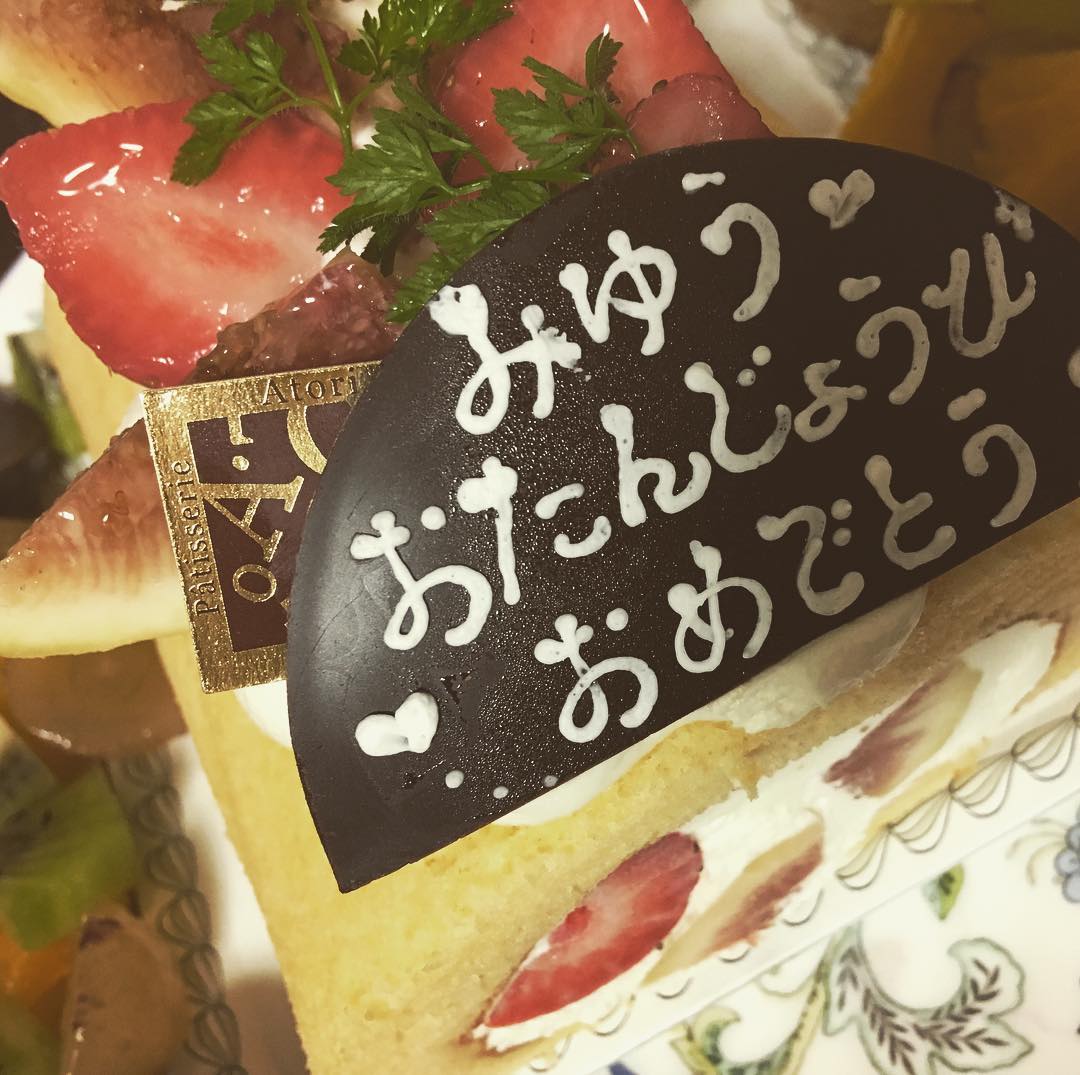 みゆう♡
おたんじょうび
♡おめでとう
Atori
Pâtisserie